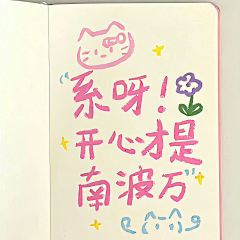 “系呀！
开心才是
南波万”